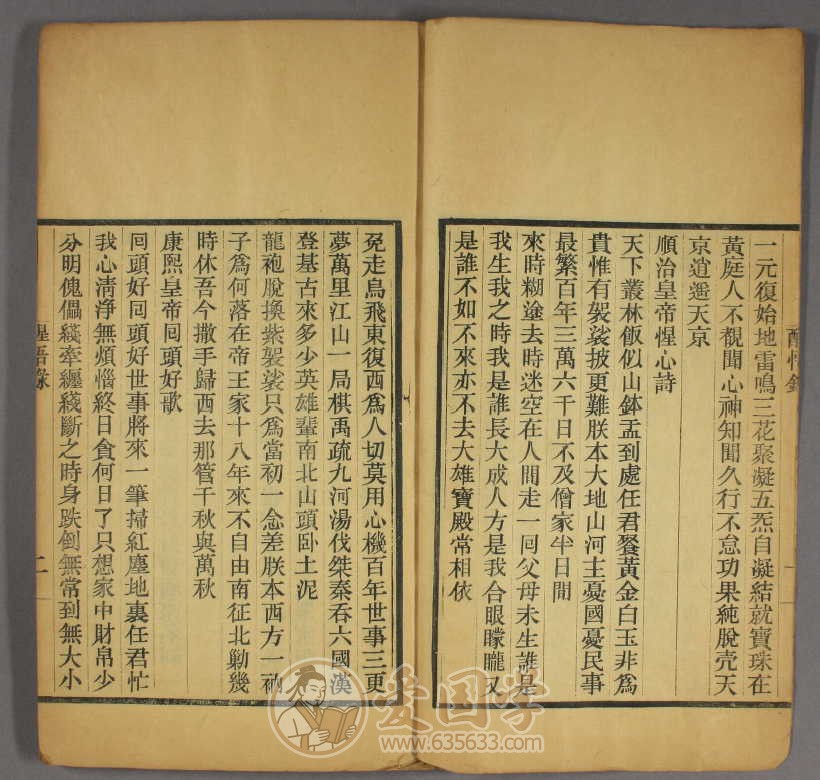 一元復始地雷鳴三花聚凝五炁自凝結就寶珠在
黃庭人不覩聞心神知聞久行不怠功果純脫壳天
京逍遥天京
順治皇帝惺心詩
天下叢林飯似山鉢盂到處任君餐黃金白玉非為
貴惟有袈裟披更難朕本大地山河主憂國憂民事
最繁百年三萬六千日不及僧家半日閒
來時糊塗去時迷空在人間走一囘父母未生誰是
我生我之時我是誰長大成人方是我合眼矇矓又
是誰不如不來亦不去大雄寶殿常相依
兔走鳥飛東復西為人切莫用心機百年世事三更
夢萬里江山一局棋禹疏九河湯伐桀秦吞六國漢
登基古來多少英雄輩南北山頭卧土泥
龍袍脫換紫袈裟只為當初一念差朕本西方一衲
子為何落在帝王家十八年來不自由南征北勦幾
時休吾今撒手歸西去那管千秋與萬秋
康熙皇帝囘頭好歌
囘頭好囘頭好世事將來一筆掃紅塵地裏任君忙
我心清淨無煩惱終日貪何日了只想家中財帛少
分明傀儡綫牽纏綫斷之時身跌倒無常到無大小
惺吾錄
二
爱国学
www.635633.com